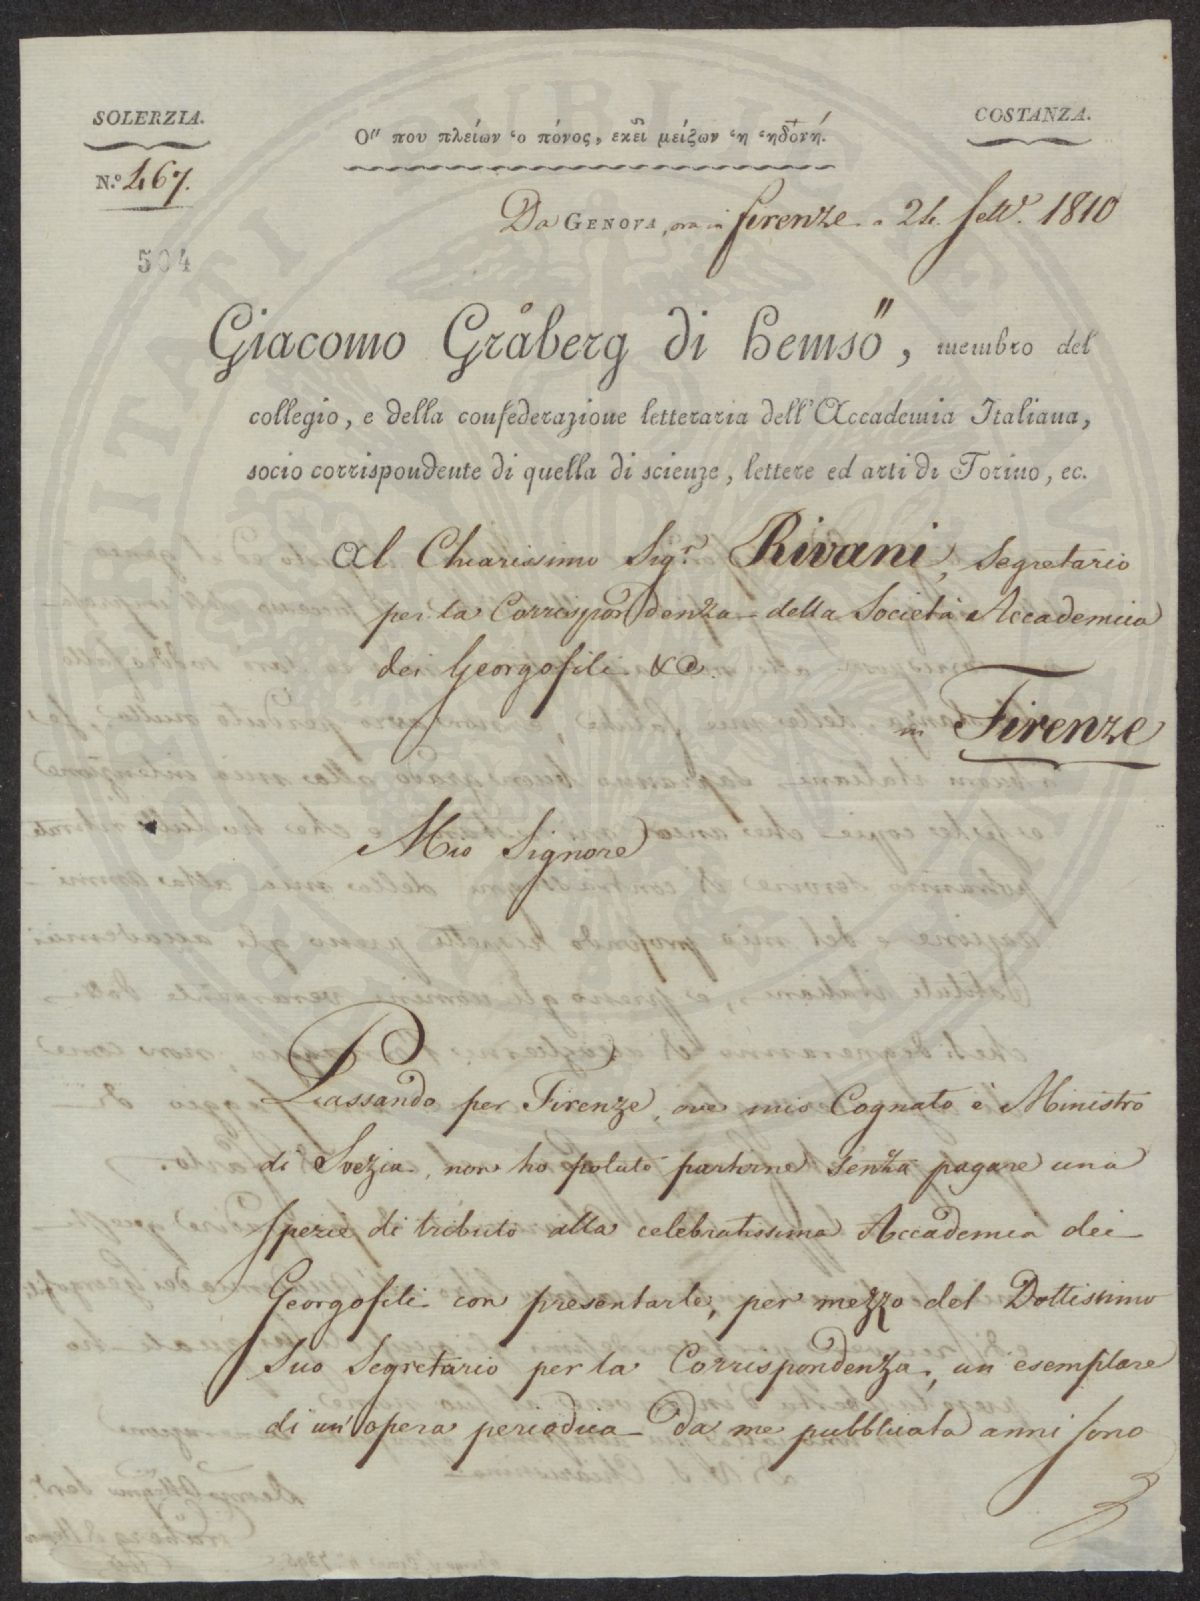 SOLERZIA.
COSTANZA.
Ο῎ που πλείων ῾ο πόνος, εκεῖ μείζων ῾η ῾ηδονή.
N.º 467.
Da GENOVA, ora in Firenze a 24. Sett.e 1810
504
Giacomo Gråberg di Hemsö, membro del
collegio, e della confederazione letteraria dell'Accademia Italiana,
socio corrispondente di quella di scienze, lettere ed arti di Torino, ec.
Al Chiarissimo Sig.r Rivani, Segretario
per la Corrispondenza della Società Accademica
dei Georgofili &c.
in Firenze
Mio Signore
Passando per Firenze, ove mio Cognato è Ministro
di Svezia, non ho potuto partirne senza pagare una
spezie di tributo alla celebratissima Accademia dei
Georgofili con presentarle, per mezzo del Dottissimo
Suo Segretario per la Corrispondenza, un esemplare
di un'opera periodica da me pubblicata anni sono